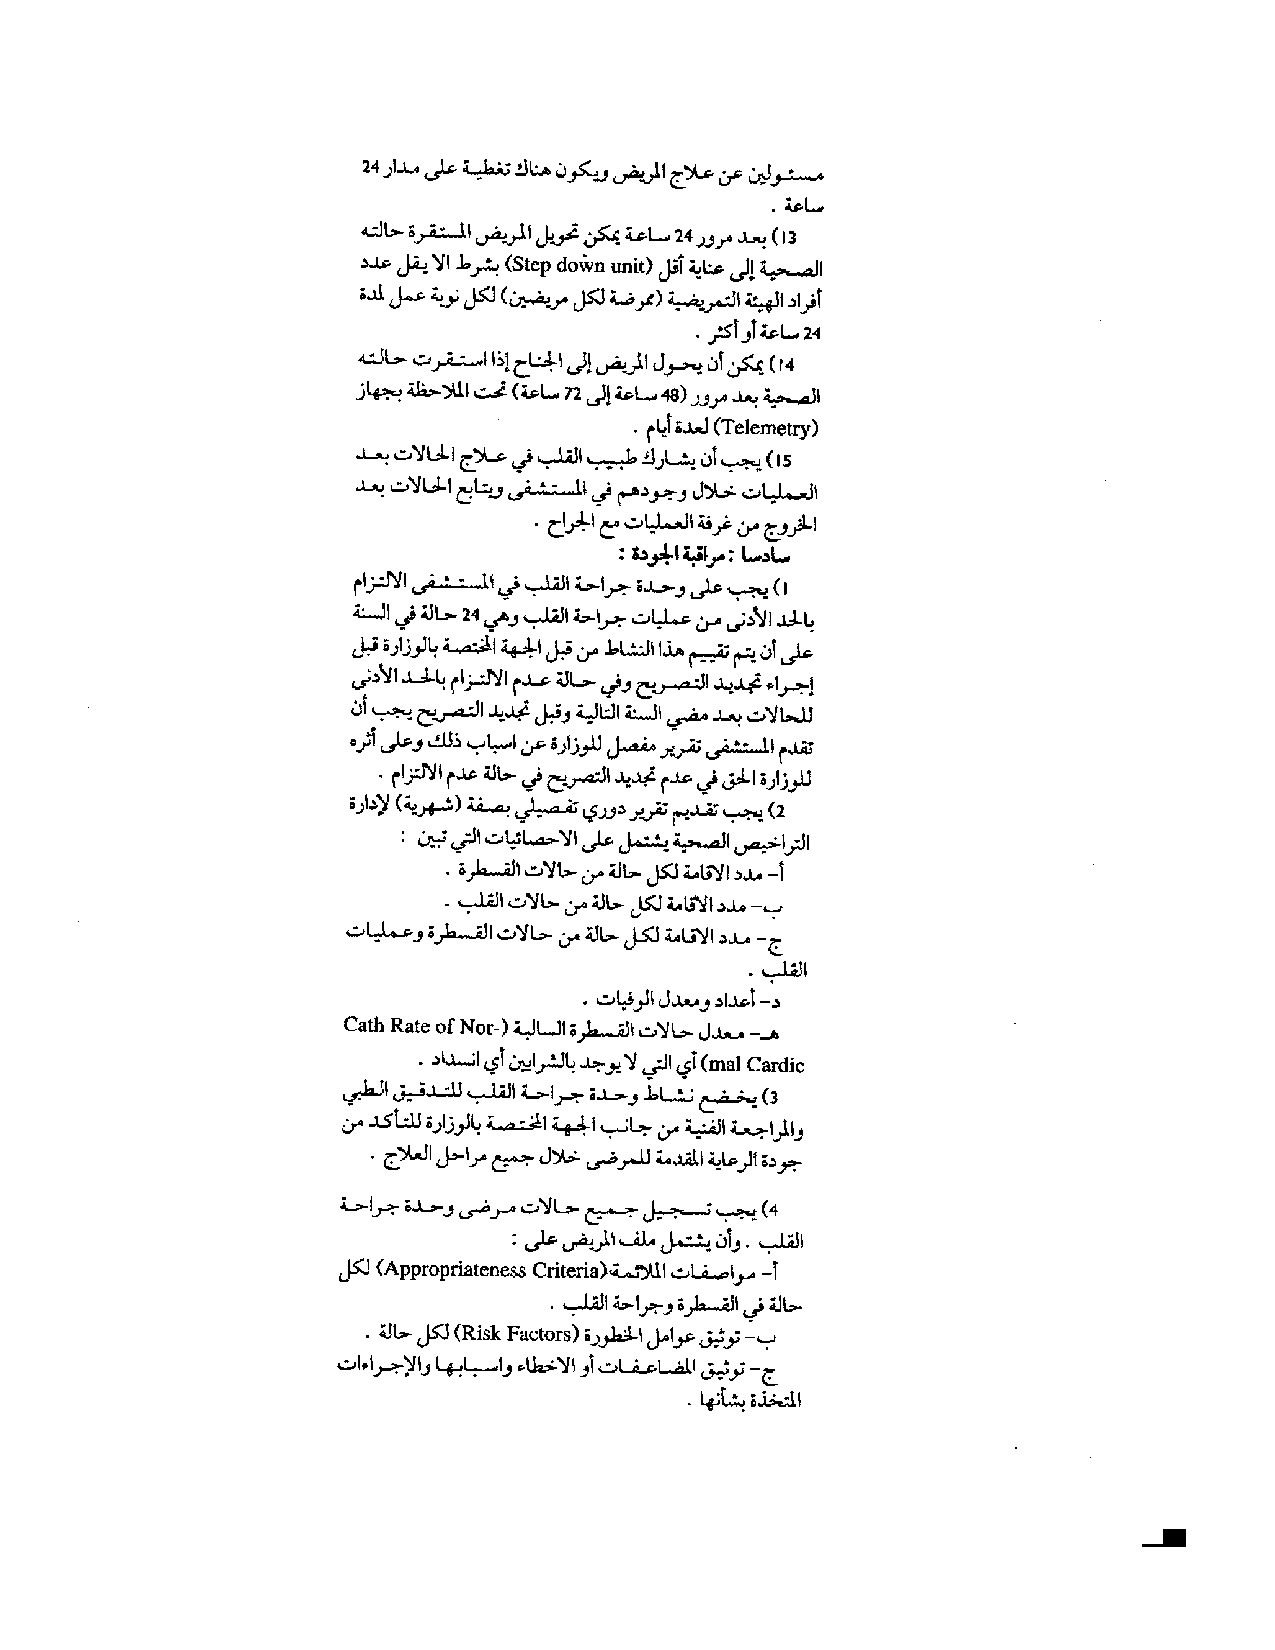 مسئولين عن علاج المريض ويكون هناك تغطية على مدار 24
ساعة .
13) بعد مرور 24 ساعة يمكن تحويل المريض المستقرة حالته
الصحية إلى عناية أقل (Step down unit) بشرط الا يقل عدد
أفراد الهيئة التمريضية (ممرضة لكل مريضين) لكل نوبة عمل لمدة
24 ساعة أو أكثر .
14) يمكن أن يحول المريض إلى الجناح إذا استقرت حالته
الصحية بعد مرور (48 ساعة إلى 72 ساعة) تحت الملاحظة بجهاز
(Telemetry) لعدة أيام .
15) يجب أن يشارك طبيب القلب في علاج الحالات بعد
العمليات خلال وجودهم في المستشفى ويتابع الحالات بعد
الخروج من غرفة العمليات مع الجراح .
سادسا : مراقبة الجودة :
1) يجب على وحدة جراحة القلب في المستشفى الالتزام
بالحد الأدنى من عمليات جراحة القلب وهي 24 حالة في السنة
على أن يتم تقييم هذا النشاط من قبل الجهة المختصة بالوزارة قبل
إجراء تجديد التصريح وفي حالة عدم الالتزام بالحد الأدنى
للحالات بعد مضي السنة التالية وقبل تجديد التصريح يجب أن
تقدم المستشفى تقرير مفصل للوزارة عن اسباب ذلك وعلى أثره
للوزارة الحق في عدم تجديد التصريح في حالة عدم الالتزام .
2) يجب تقديم تقرير دوري تفصيلي بصفة (شهرية) لإدارة
التراخيص الصحية يشتمل على الاحصائيات التي تبين :
أ- مدد الاقامة لكل حالة من حالات القسطرة .
ب- مدد الاقامة لكل حالة من حالات القلب .
ج- مدد الاقامة لكل حالة من حالات القسطرة وعمليات
القلب .
د- أعداد ومعدل الوفيات .
هـ- معدل حالات القسطرة السالبة (Cath Rate of Nor-
mal Cardic) أي التي لا يوجد بالشرايين أي انسداد .
3) يخضع نشاط وحدة جراحة القلب للتدقيق الطبي
والمراجعة الفنية من جانب الجهة المختصة بالوزارة للتأكد من
جودة الرعاية المقدمة للمرضى خلال جميع مراحل العلاج .
4) يجب تسجيل جميع حالات مرضى وحدة جراحة
القلب . وأن يشتمل ملف المريض على :
أ- مواصفات الملائمة(Appropriateness Criteria) لكل
حالة في القسطرة وجراحة القلب .
ب- توثيق عوامل الخطورة (Risk Factors) لكل حالة .
ج- توثيق المضاعفات أو الاخطاء واسبابها والإجراءات
المتخذة بشأنها .